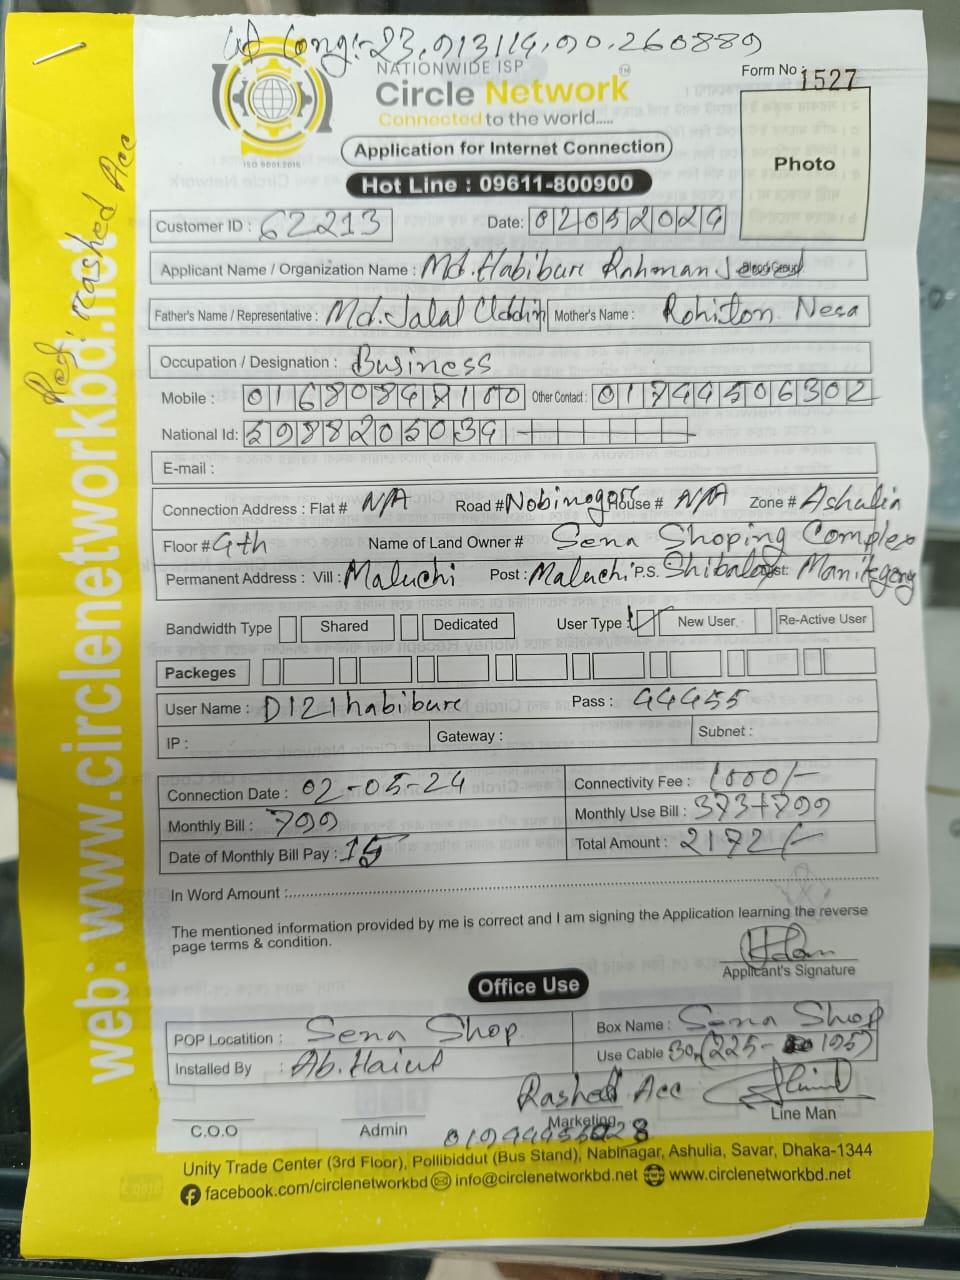 Long:-23.913114,90.260889
NATIONWIDE ISP
Circle Network TM
Connected to the world.....
ISO 9001:2015
Form No : 1527
Photo
Application for Internet Connection
Hot Line : 09611-800900
Customer ID : 62213 Date: 02052024
Applicant Name / Organization Name : Md. Habibure Rahman
Father's Name / Representative : Md. Jalal Uddin Mother's Name : Rohiton Nesa
Occupation / Designation : Business
Mobile : Other Contact : 01744506302
National Id: 5988205034
E-mail :
Connection Address : Flat # N/A Road # Nobinogor House # N/A Zone # Ashulia
Floor # 4th Name of Land Owner # Sena Shoping Complex
Permanent Address : Vill : Maluchi Post : Maluchi P.S. Shibaloy Dist: Manikgong
Bandwidth Type Shared Dedicated User Type : New User Re-Active User
Packeges
User Name : D121habibure Pass : 44455
IP : Gateway : Subnet :
Connection Date : 02-05-24 Connectivity Fee : 1000/-
Monthly Bill : 799 Monthly Use Bill : 373+799
Date of Monthly Bill Pay : 15 Total Amount : 2172/-
In Word Amount :
The mentioned information provided by me is correct and I am signing the Application learning the reverse
page terms & condition.
Applicant's Signature
Office Use
POP Locatition : Sena Shop Box Name : Sena Shop
Installed By : Use Cable 30, (225- 195)
Rashed Acc
C.O.O Admin Marketing Line Man
Unity Trade Center (3rd Floor), Pollibiddut (Bus Stand), Nabinagar, Ashulia, Savar, Dhaka-1344
facebook.com/circlenetworkbd info@circlenetworkbd.net www.circlenetworkbd.net
web: www.circlenetworkbd.net
Ref: Rashed Acc